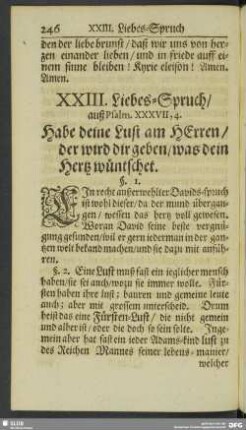 246 XXIII. Liebes-Spruch
den der liebe brunst/ daß wir uns von her-
tzen einander lieben/ und in friede auff ei-
nem sinne bleiben! Kyrie eleison! Amen.
Amen.
XXIII. Liebes-Spruch/
auß Psalm. XXXVII, 4.
Habe deine Lust am HErren/
der wird dir geben/ was dein
Hertz wüntschet.
§. 1.
EIn recht außerwehlter Davids-spruch
ist wohl dieser/ da der mund übergan-
gen/ wessen das hertz voll gewesen.
Woran David seine beste vergnü-
gung gefunden/ wil er gern iederman in der gan-
tzen welt bekand machen/ und sie dazu mit anfüh-
ren.
§. 2. Eine Lust muß fast ein ieglicher mensch
haben/ sie sei auch/ wozu sie immer wolle. Für-
sten haben ihre lust; bauren und gemeine leute
auch; aber mit grossem unterscheid. Drum
heist das eine Fürsten-Lust/ die nicht gemein
und alber ist/ oder die doch so sein solte. Inge-
mein aber hat fast ein ieder Adams-kind lust zu
des Reichen Mannes seiner lebens-manier/
welcher
SLUB
DFG